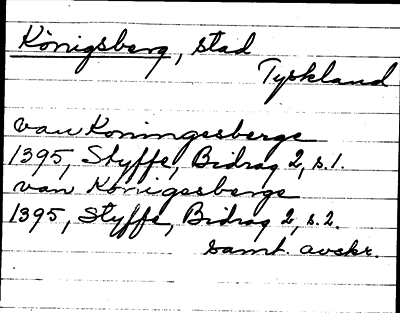 Königsberg, stad
Tyskland
van Koningesberge
1395, Styffe, Bidrag 2, s. 1.
van Konigessberge
1395, Styffe, Bidrag 2, s. 2.
samt. avskr.